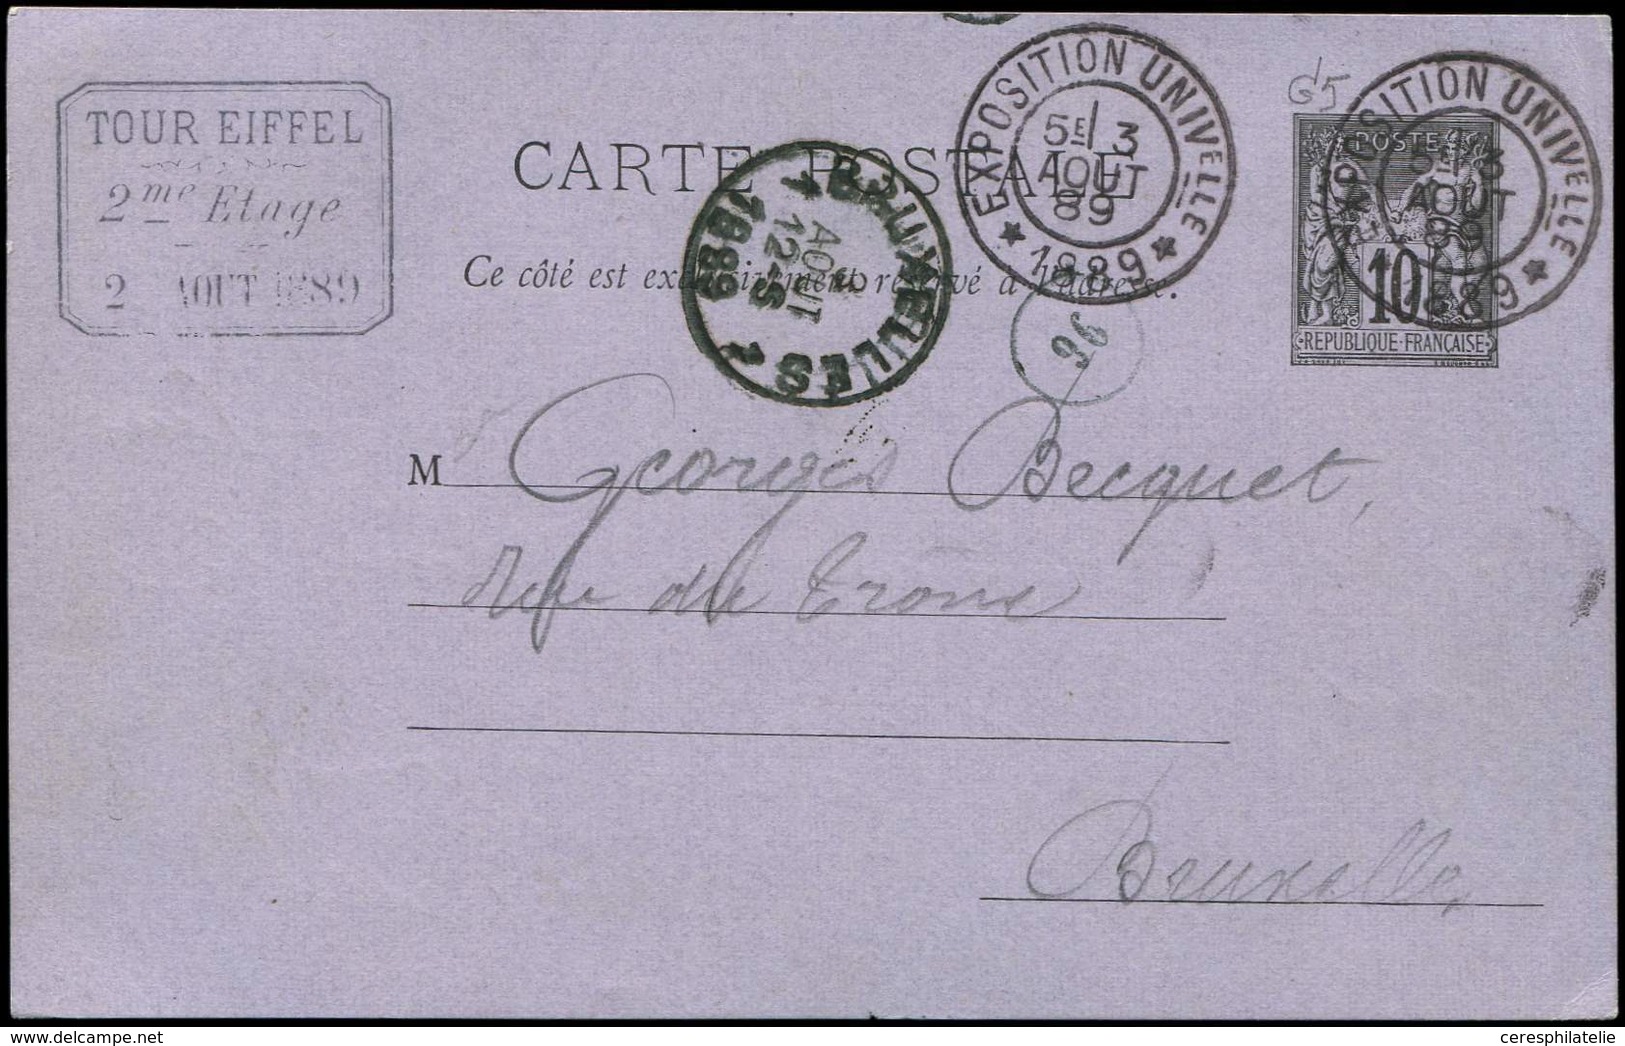 TOUR EIFFEL
2me Etage
2 AOUT 1889
CARTE POSTALE
Ce côté est exclusivement réservé à l'adresse.
EXPOSITION UNIVELLE
5E 3
AOUT
89
★ 1889 ★
G5
EXPOSITION UNIVELLE
5E 3
AOUT
89
1889 ★
POSTE
10
REPUBLIQUE FRANÇAISE
BRUXELLES 1
AOUT
12-S
1889
96
M Georges Becquet,
Rue du Trône
Bruxelles
ceresphilatelie
delcampe.net